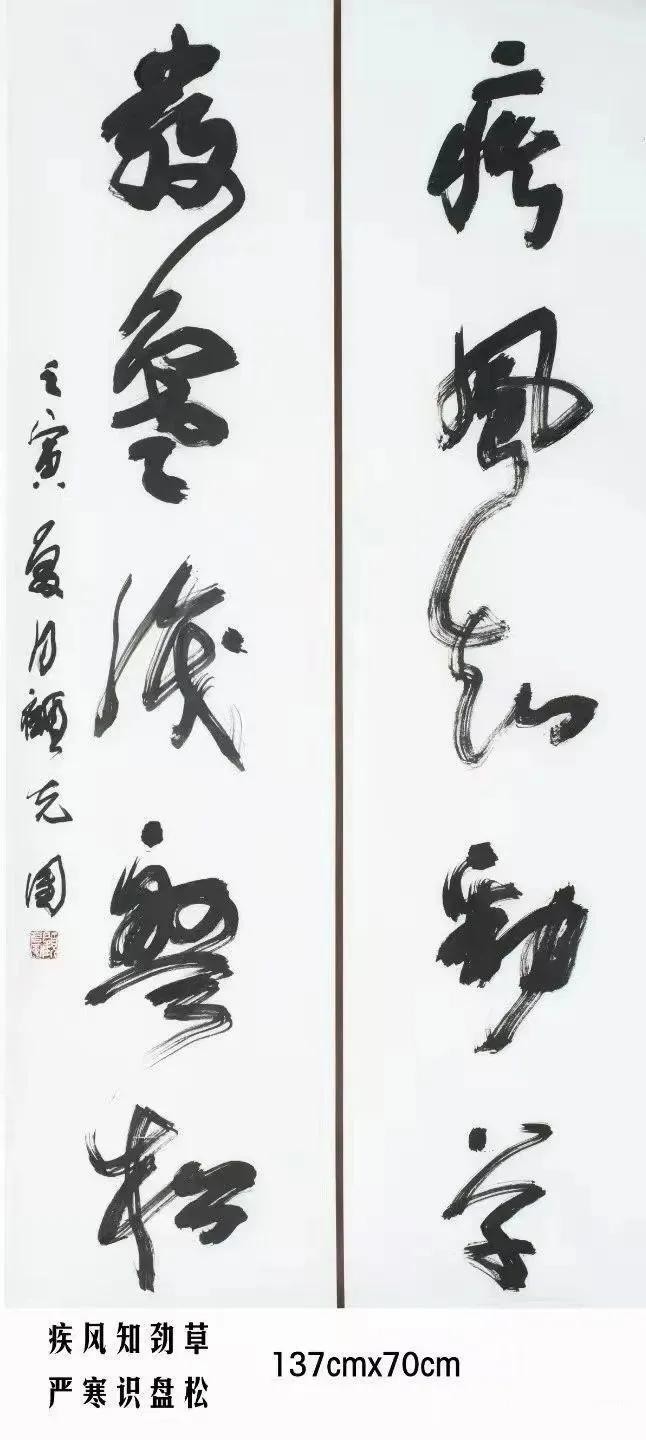 疾風知勁草
嚴寒識盤松
壬寅夏月顧克國
疾风知劲草
严寒识盘松
137cmx70cm